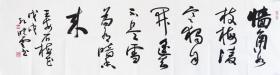 墙角数
枝梅凌
寒独自
开遥知
不是雪
为有暗香
来
王安石梅花
戊戌